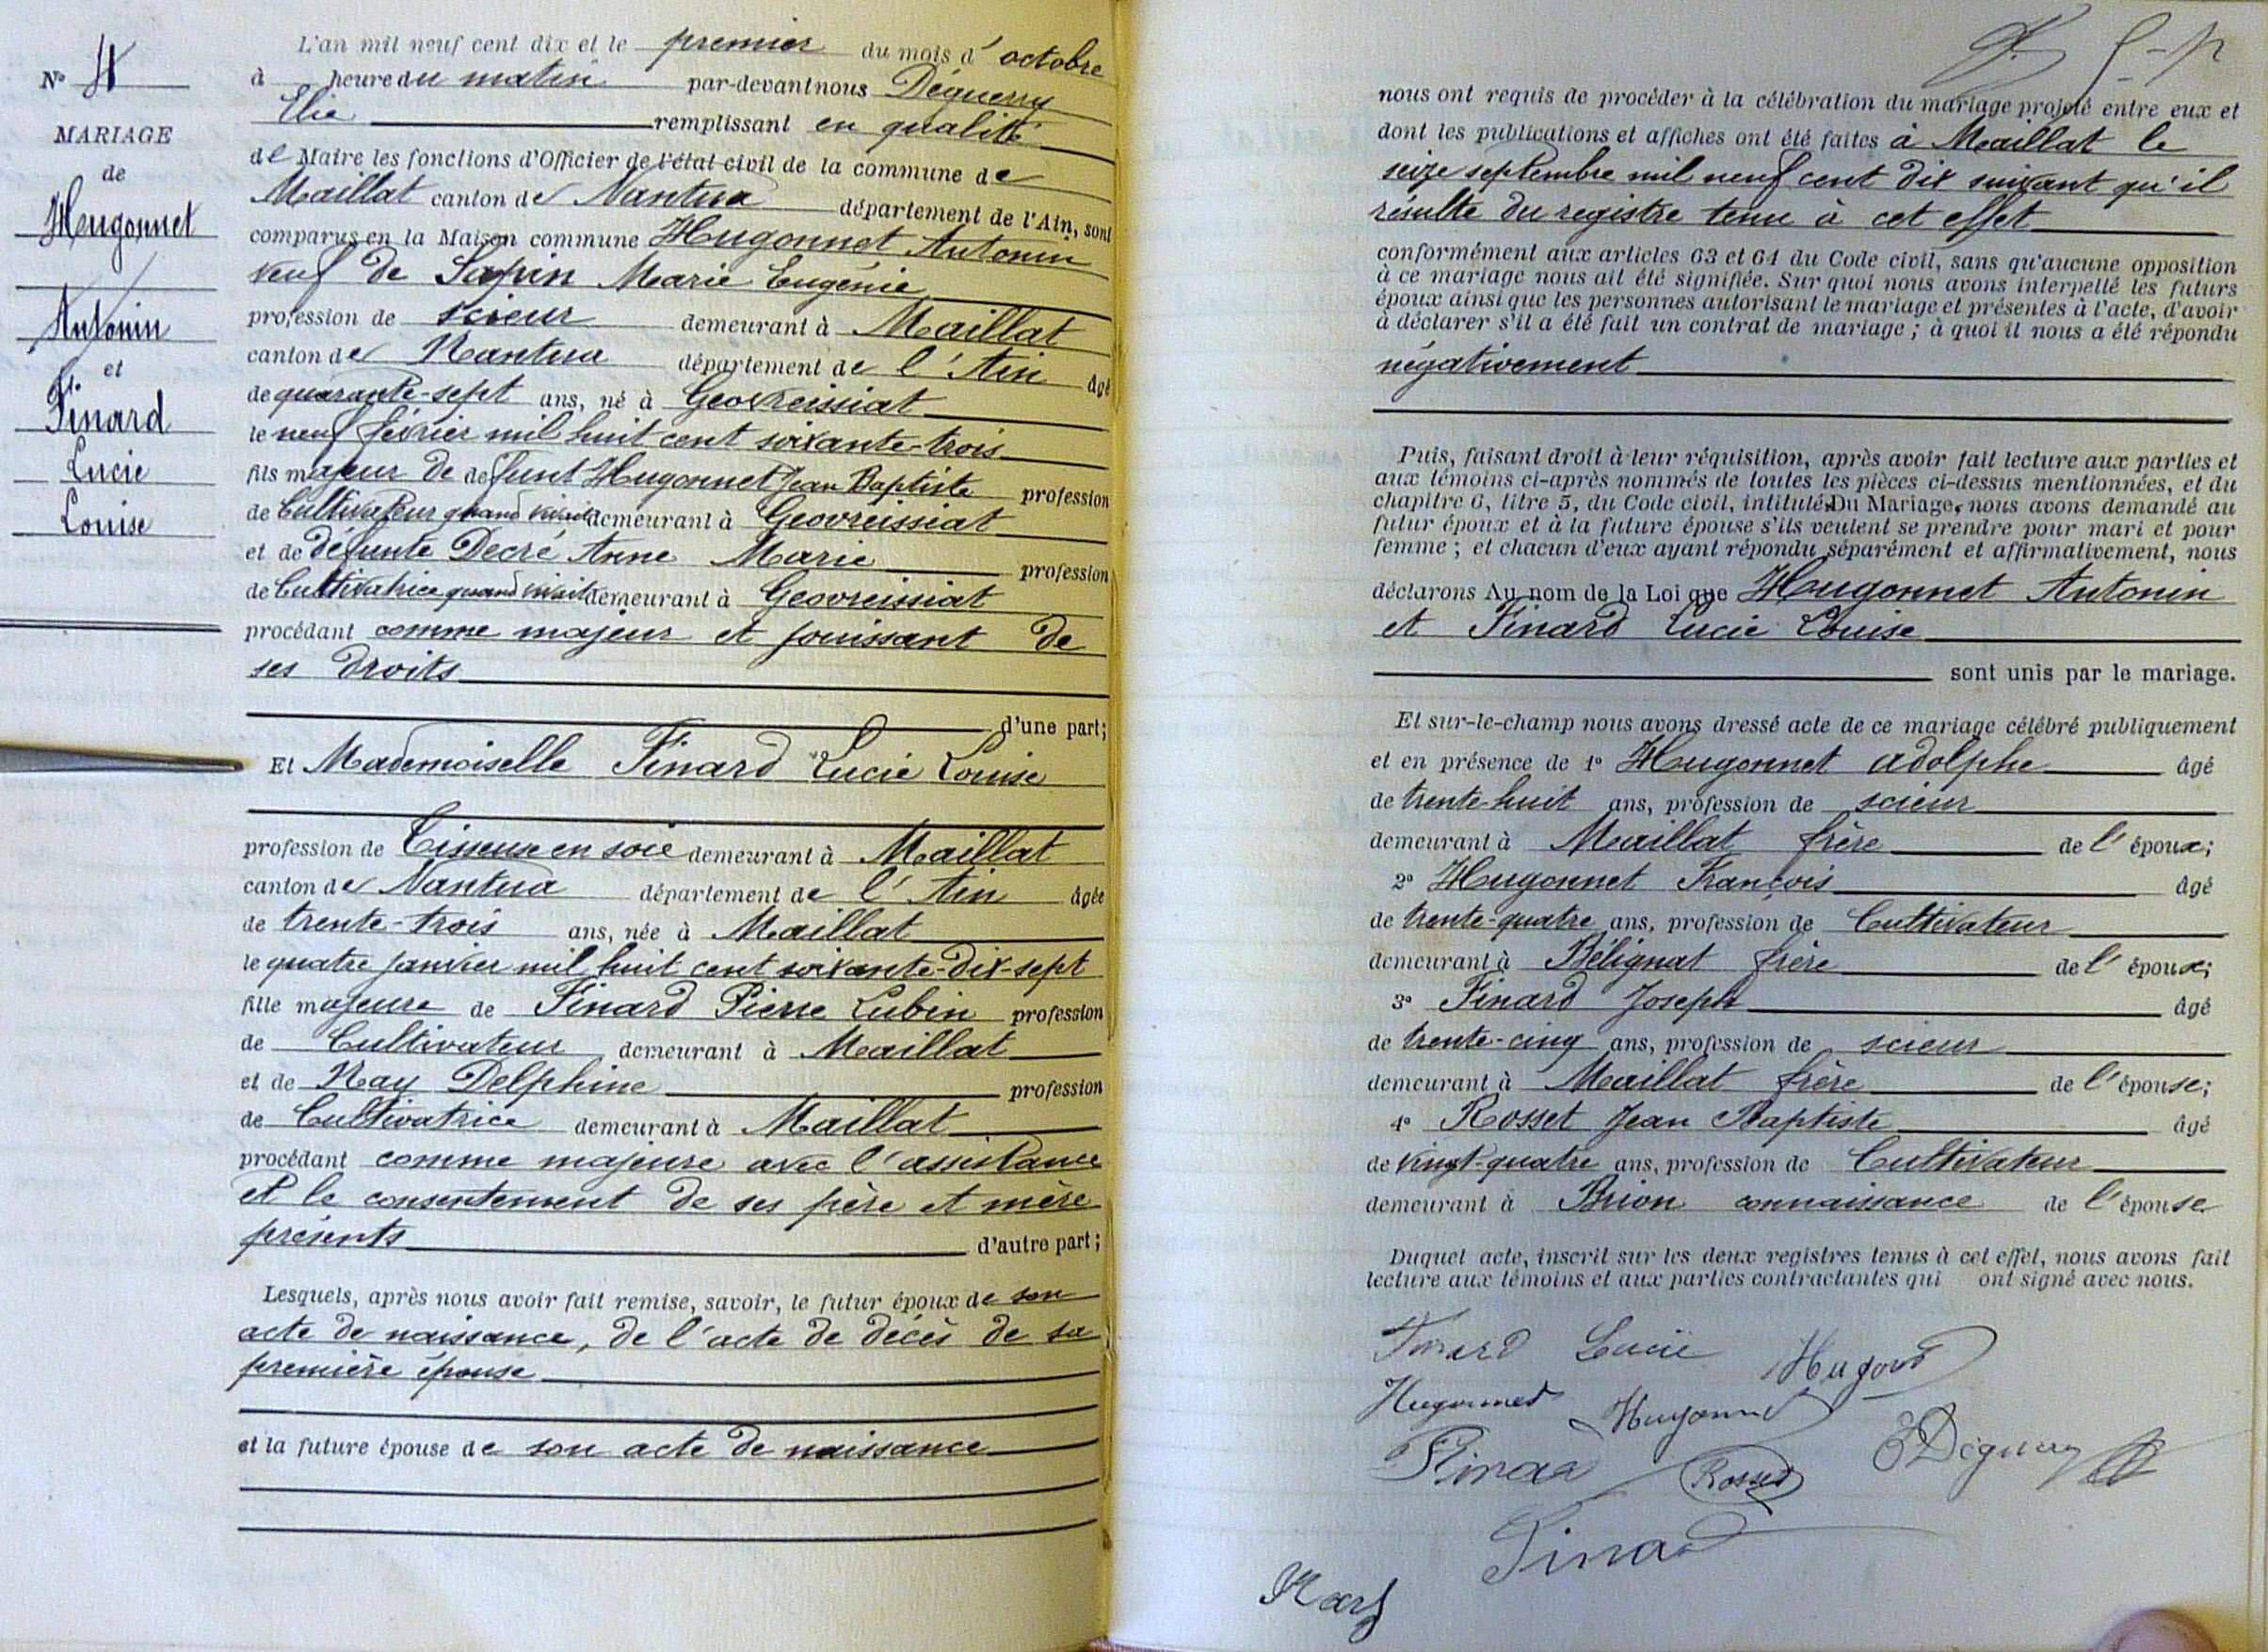 L'an mil neuf cent dix et le premier du mois d'octobre
à heure du matin par-devant nous Déguerry
Elie remplissant en qualité
de Maire les fonctions d'Officier de l'état civil de la commune de
Maillat canton de Nantua département de l'Ain, sont
comparus en la Maison commune Hugonnet Antonin
veuf de Sapin Marie Eugénie
profession de scieur demeurant à Maillat
canton de Nantua département de l'Ain âgé
de quarante-sept ans, né à Geovreissiat
le neuf février mil huit cent soixante-trois
fils majeur de defunt Hugonnet Jean Baptiste profession
de Cultivateur quand vivait demeurant à Geovreissiat
et de défunte Decré Anne Marie profession
de Cultivatrice quand vivait demeurant à Geovreissiat
procédant comme majeur et jouissant de
ses droits
d'une part;
Et Mademoiselle Finard Lucie Louise
profession de Tisseuse en soie demeurant à Maillat
canton de Nantua département de l'Ain âgée
de trente-trois ans, née à Maillat
le quatre janvier mil huit cent soixante-dix-sept
fille majeure de Finard Pierre Lubin profession
de Cultivateur demeurant à Maillat
et de Nay Delphine profession
de Cultivatrice demeurant à Maillat
procédant comme majeure avec l'assistance
et le consentement de ses père et mère
présents d'autre part;
Lesquels, après nous avoir fait remise, savoir, le futur époux de son
acte de naissance, de l'acte de décès de sa
première épouse
et la future épouse de son acte de naissance
N°
MARIAGE
de
Hugonnet
Antonin
et
Finard
Lucie
Louise
nous ont requis de procéder à la célébration du mariage projeté entre eux et
dont les publications et affiches ont été faites à Maillat le
seize septembre mil neuf cent dix suivant qu'il
résulte du registre tenu à cet effet
conformément aux articles 63 et 64 du Code civil, sans qu'aucune opposition
à ce mariage nous ait été signifiée. Sur quoi nous avons interpellé les futurs
époux ainsi que les personnes autorisant le mariage et présentes à l'acte, d'avoir
à déclarer s'il a été fait un contrat de mariage ; à quoi il nous a été répondu
négativement
Puis, faisant droit à leur réquisition, après avoir fait lecture aux parties et
aux témoins ci-après nommés de toutes les pièces ci-dessus mentionnées, et du
chapitre 6, titre 5, du Code civil, intitulé Du Mariage, nous avons demandé au
futur époux et à la future épouse s'ils veulent se prendre pour mari et pour
femme ; et chacun d'eux ayant répondu séparément et affirmativement, nous
déclarons Au nom de la Loi que Hugonnet Antonin
et Finard Lucie Louise
sont unis par le mariage.
Et sur-le-champ nous avons dressé acte de ce mariage célébré publiquement
et en présence de 1° Hugonnet Adolphe âgé
de trente-huit ans, profession de scieur
demeurant à Maillat frère de l'époux;
2° Hugonnet François âgé
de trente-quatre ans, profession de Cultivateur
demeurant à Bélignat frère de l'époux;
3° Finard Joseph âgé
de trente-cinq ans, profession de scieur
demeurant à Maillat frère de l'épouse;
4° Rosset Jean Baptiste âgé
de vingt-quatre ans, profession de Cultivateur
demeurant à Brion connaissance de l'épouse
Duquel acte, inscrit sur les deux registres tenus à cet effet, nous avons fait
lecture aux témoins et aux parties contractantes qui ont signé avec nous.
Finard Lucie
Hugonnet
Rosset